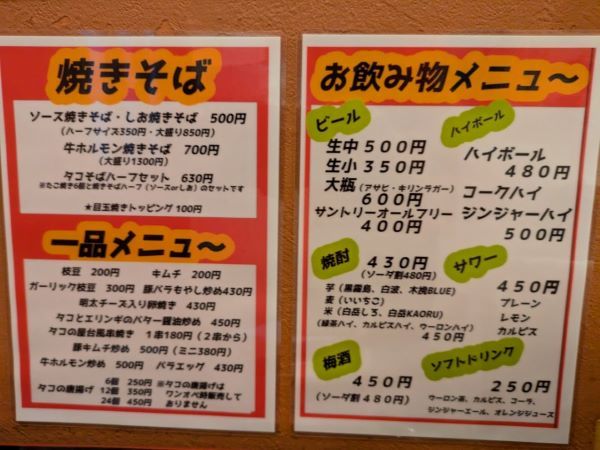 焼きそば
ソース焼きそば・しお焼きそば 500円
(ハーフサイズ350円・大盛り850円)
牛ホルモン焼きそば 700円
(大盛り1300円)
タコそばハーフセット 630円
※たこ焼き6個と焼きそばハーフ(ソースorしお)のセットです
★目玉焼きトッピング 100円
一品メニュー〜
枝豆 200円 キムチ 200円
ガーリック枝豆 300円 豚バラもやし炒め430円
明太チーズ入り卵焼き 430円
タコとエリンギのバター醤油炒め 450円
タコの屋台風串焼き 1串180円(2串から)
豚キムチ炒め 500円(ミニ380円)
牛ホルモン炒め 500円 バラエッグ 430円
タコの唐揚げ
6個 250円
12個 350円
24個 450円
※タコの唐揚げは
ワンオペ時販売して
おりません
お飲み物メニュー〜
ビール
生中 500円
生小 350円
大瓶(アサヒ・キリンラガー)
600円
サントリーオールフリー
400円
ハイボール
ハイボール
480円
コークハイ
ジンジャーハイ
500円
焼酎 430円
(ソーダ割480円)
芋(黒霧島、白波、木挽BLUE)
麦(いいちこ)
米(白岳しろ、白岳KAORU)
(緑茶ハイ、カルピスハイ、ウーロンハイ)
450円
サワー
450円
プレーン
レモン
カルピス
梅酒
450円
(ソーダ割480円)
ソフトドリンク
250円
ウーロン茶、カルピス、コーラ、
ジンジャーエール、オレンジジュース